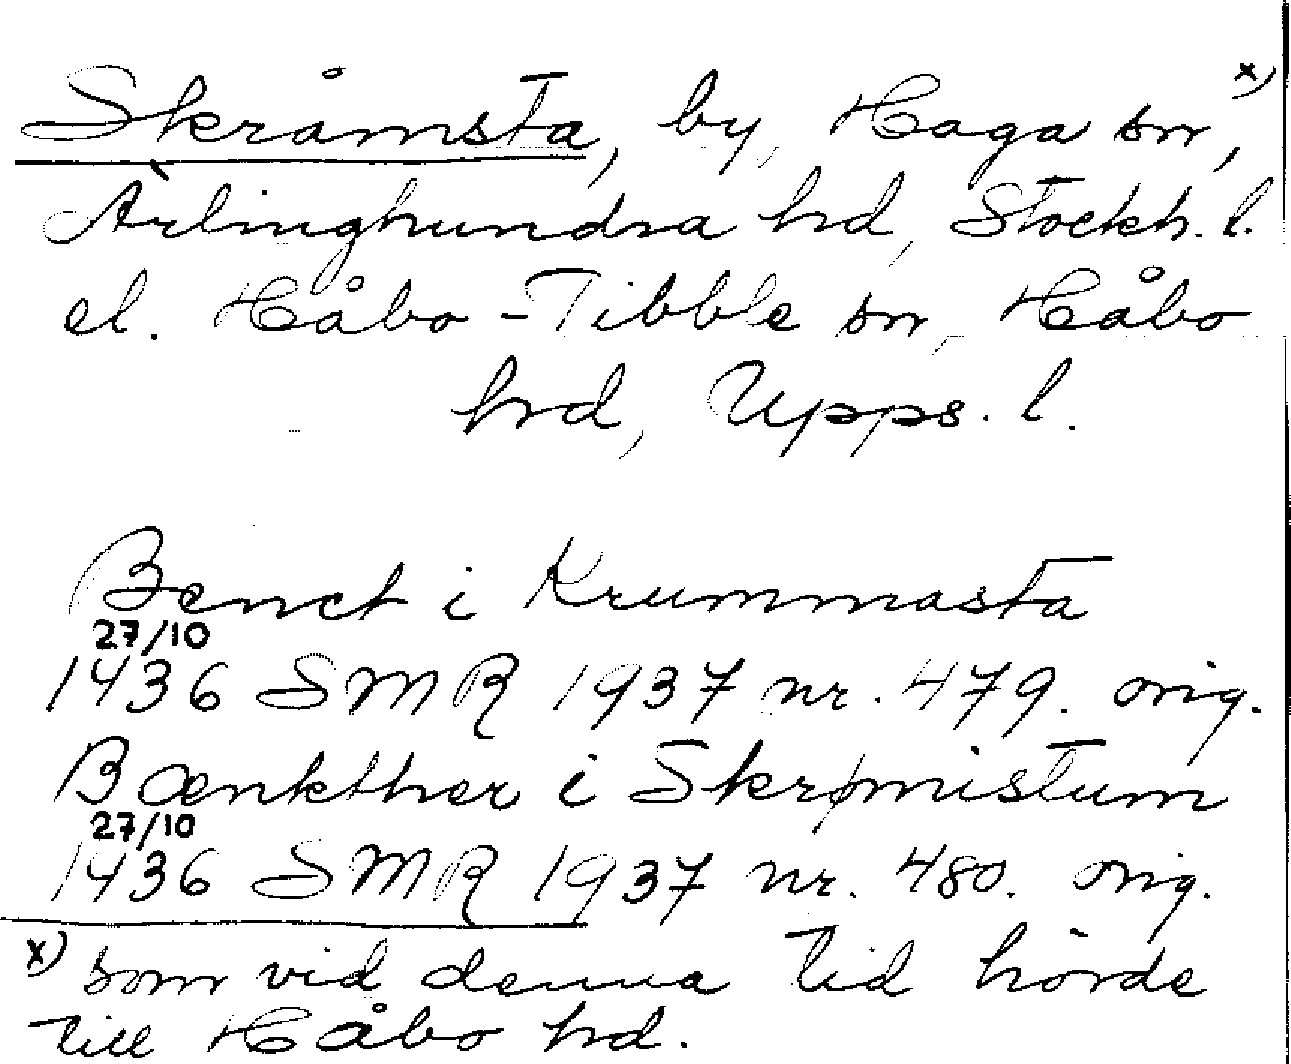 Skråmsta, by, Haga sn, x)
Ärlinghundra hd, Stockh. l.
el. Håbo-Tibble sn, Håbo
hd, Upps. l.
Benct i Krummasta
27/10
1436 SMR 1937 nr. 479. orig.
Bænkther i Skrømistum
27/10
1436 SMR 1937 nr. 480. orig.
x) som vid denna tid hörde
till Håbo hd.